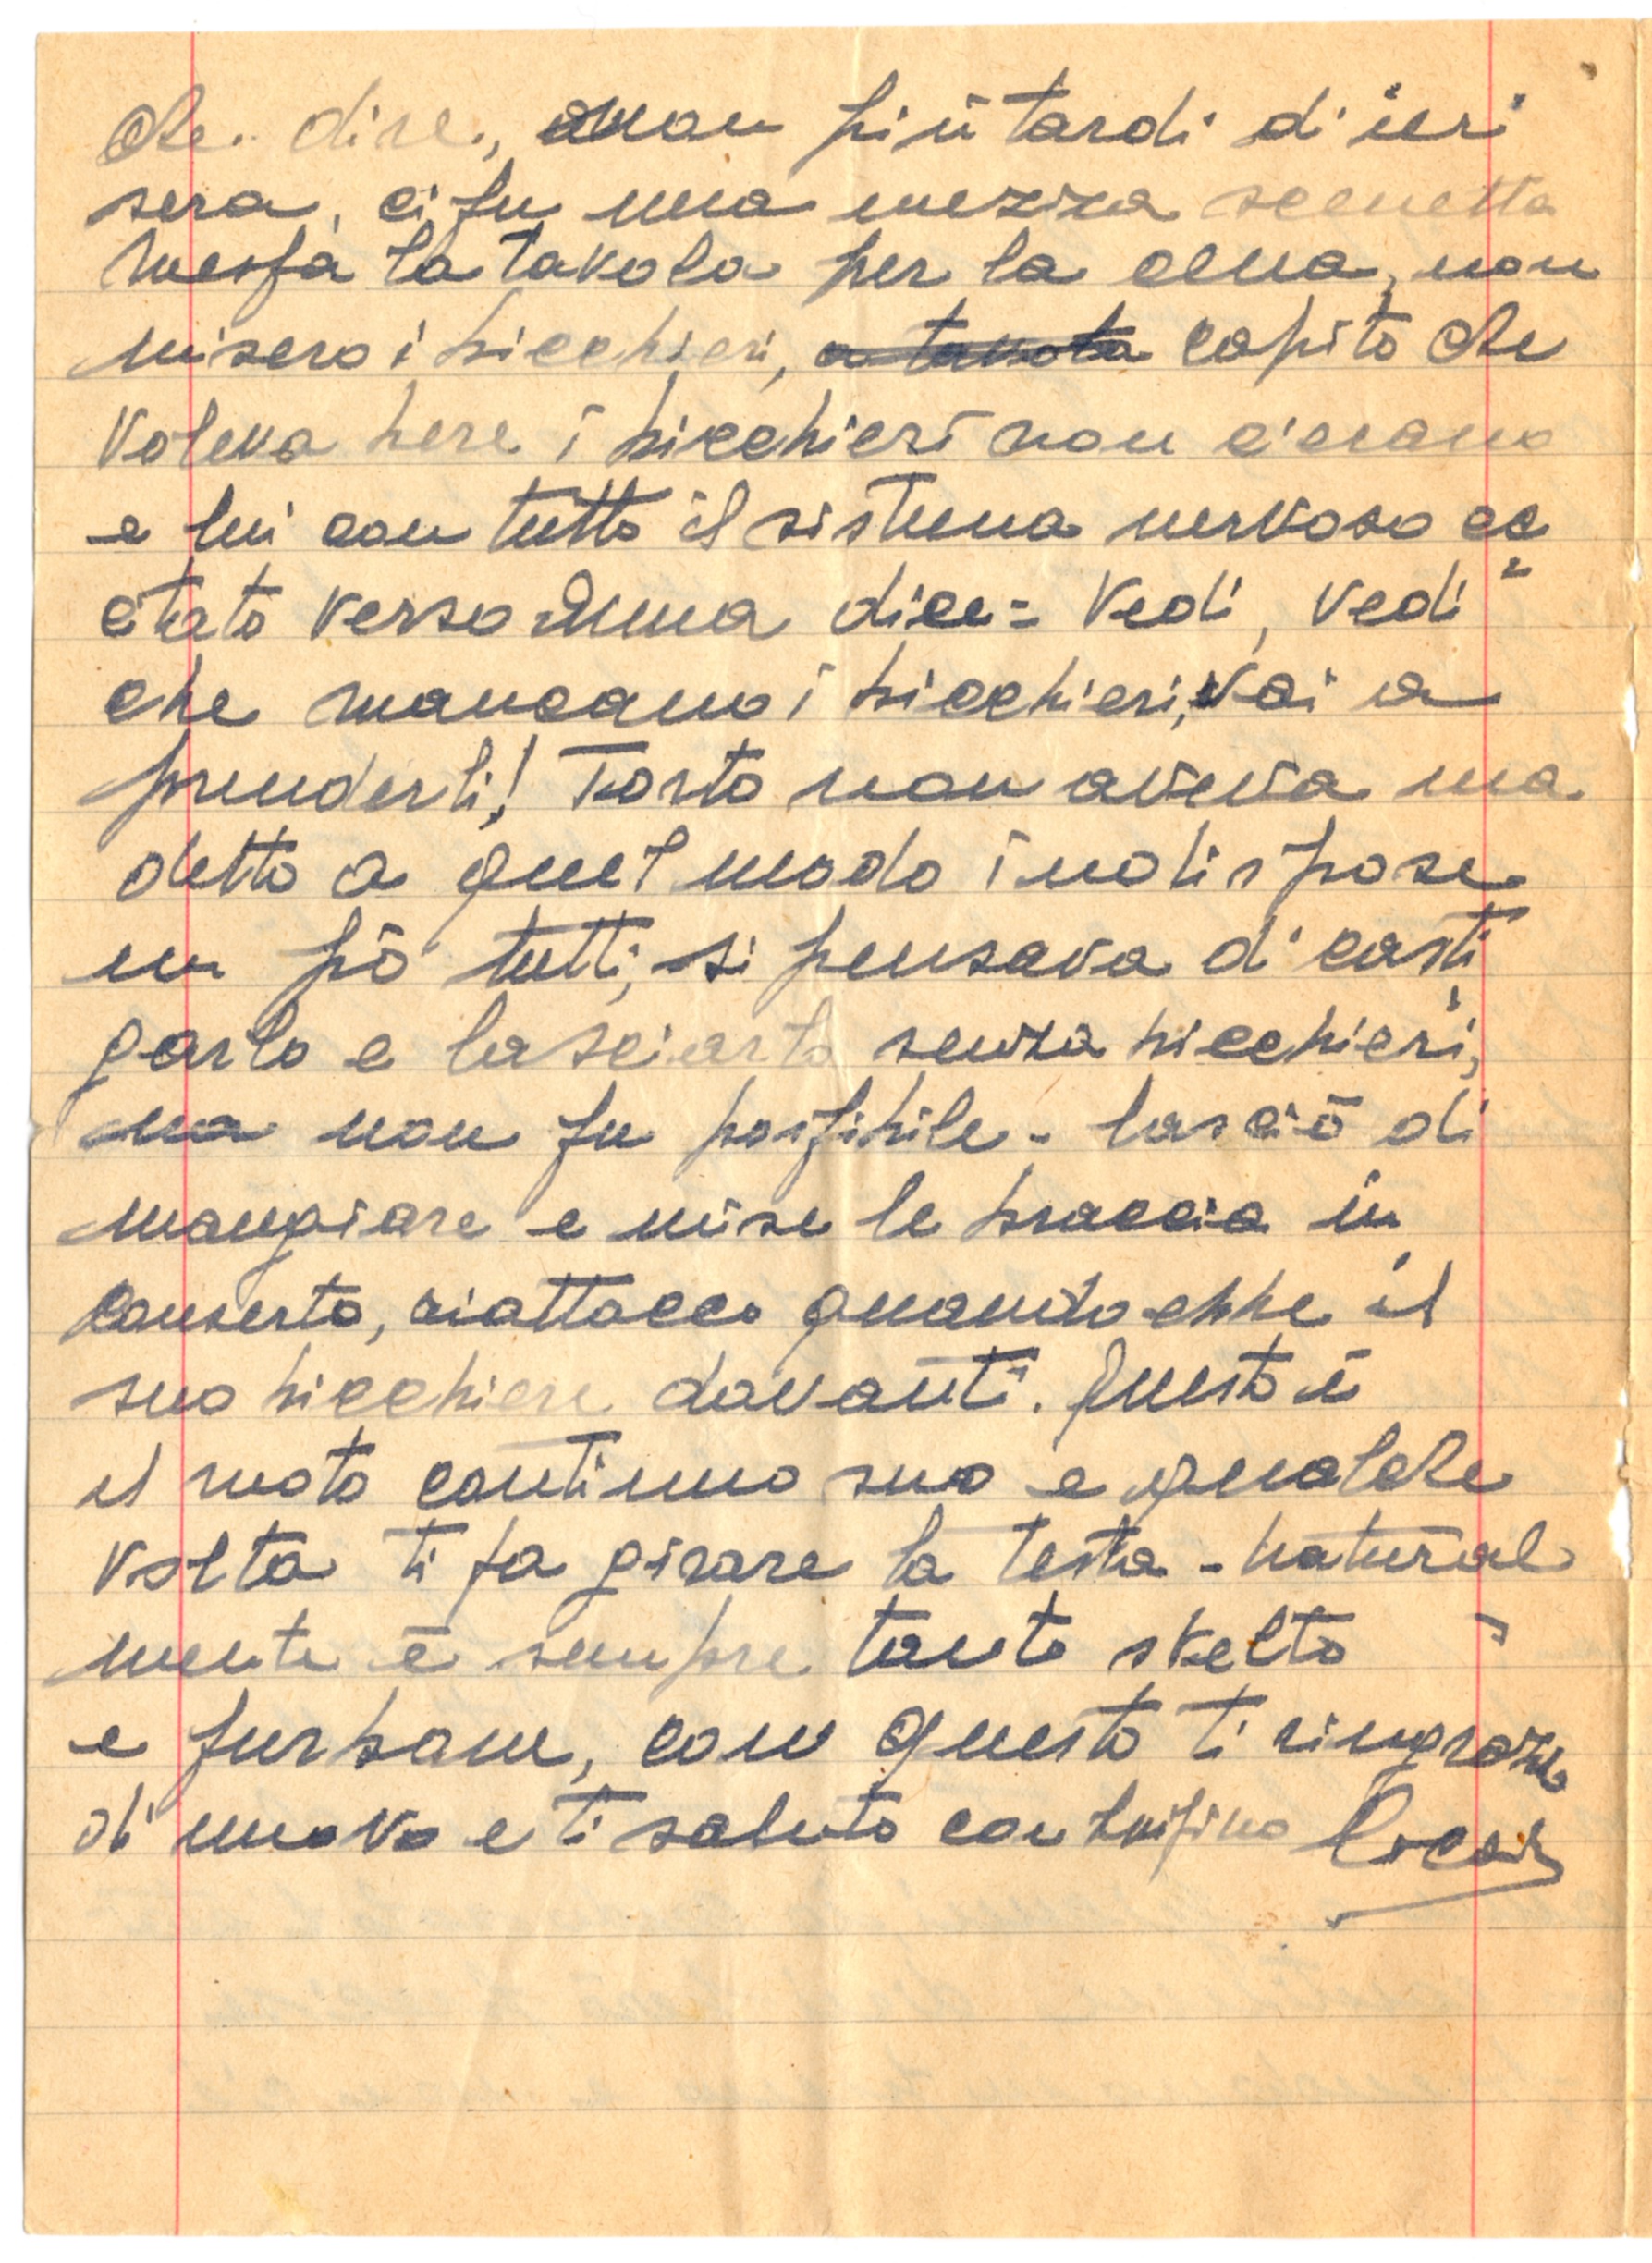 che dire, non più tardi di ieri
sera, ci fu una mezza scenetta
messa la tavola per la cena, non
misero i bicchieri, a tavola capito che
voleva bere i bicchieri non c'erano
e lui con tutto il sistema nervoso ec
citato verso Anna dice = Vedi, vedi "
che mancano i bicchieri, vai a
prenderli! Torto non aveva ma
detto a quel modo indispose
un pò tutti, si pensava di casti
garlo e lasciarlo senza bicchieri,
ma non fu possibile - lasciò di
mangiare e mise le braccia in
conserto, riattacco quando ebbe il
suo bicchiere davanti. Questo è
il moto continuo suo e qualche
volta ti fa girare la testa - natural
mente è sempre tanto svelto =
e furbone, con questo ti ringrazio
di nuovo e ti saluto con Luigino